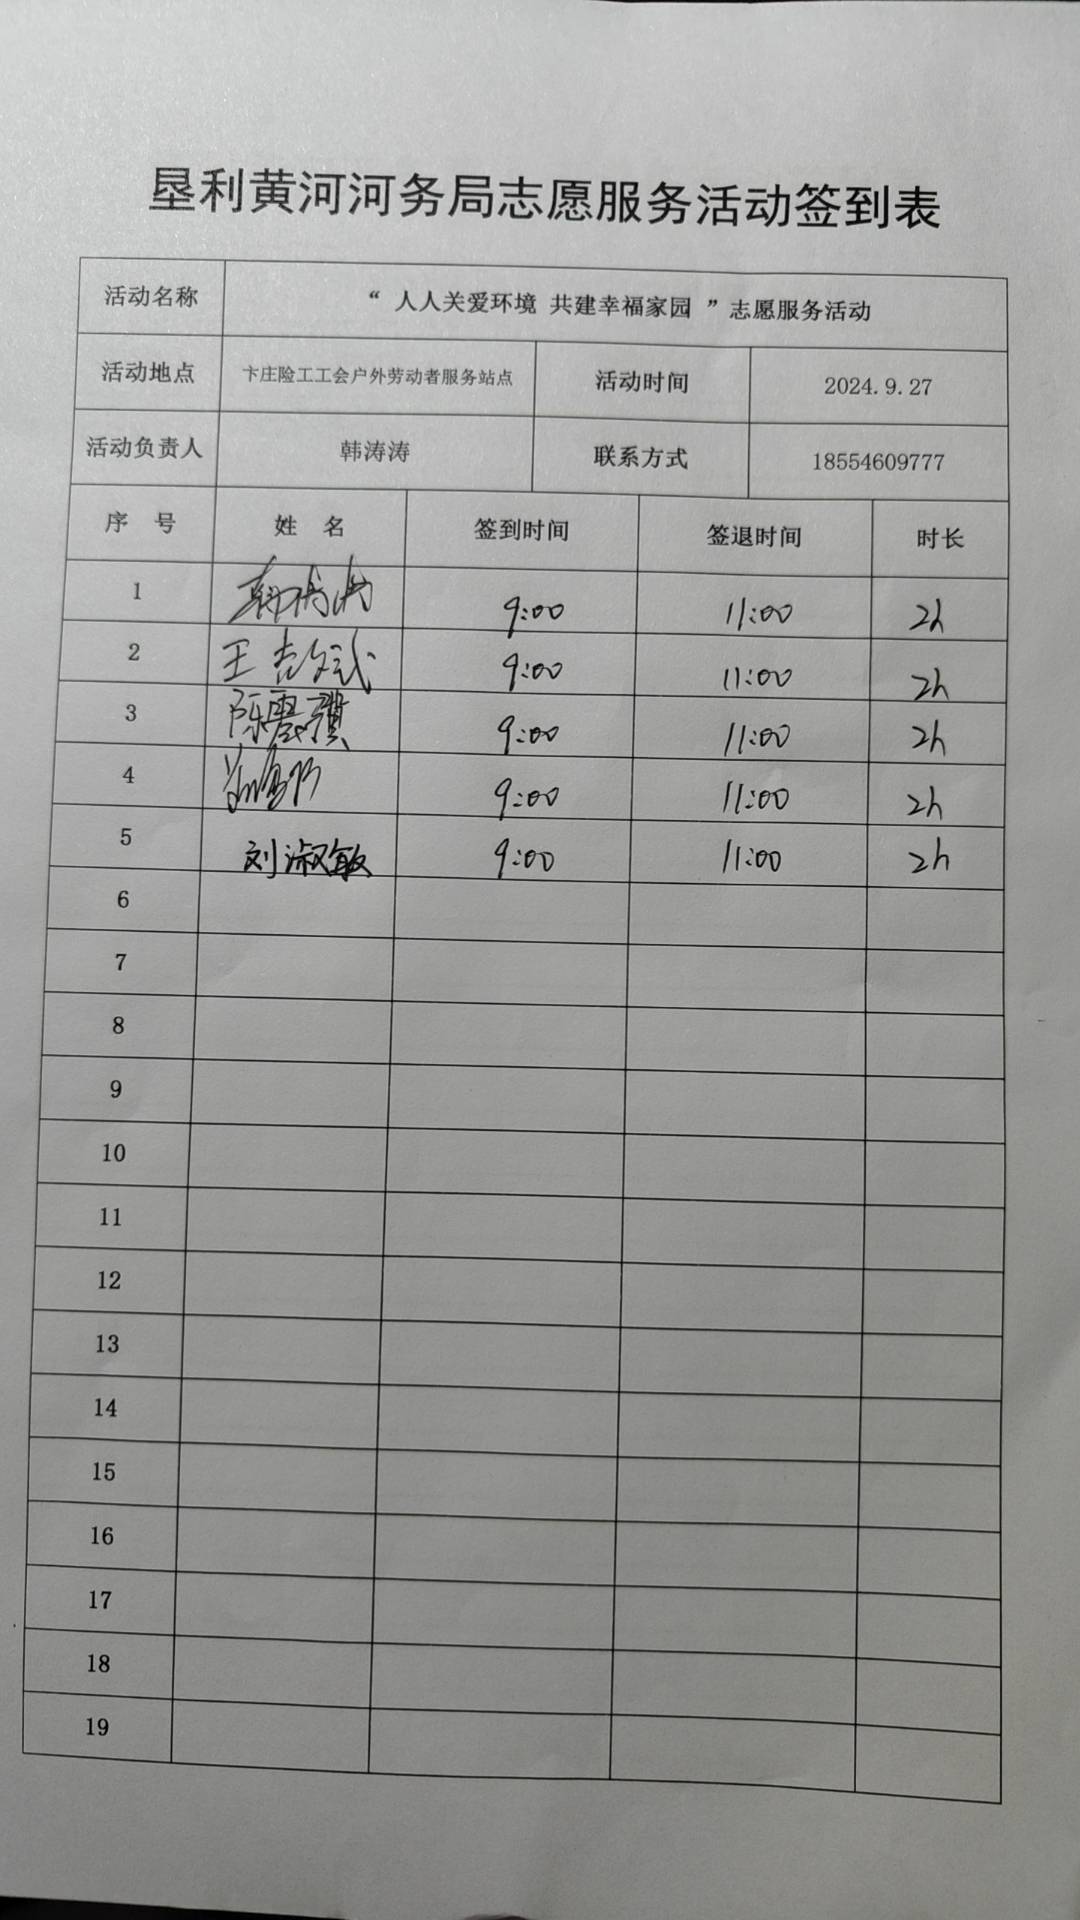 垦利黄河河务局志愿服务活动签到表
活动名称 “ 人人关爱环境 共建幸福家园 ”志愿服务活动
活动地点 卞庄险工工会户外劳动者服务站点 活动时间 2024.9.27
活动负责人 韩涛涛 联系方式 18554609777
序 号 姓 名 签到时间 签退时间 时长
1 9:00 11:00 2h
2 王 9:00 11:00 2h
3 陈震骥 9:00 11:00 2h
4 9:00 11:00 2h
5 刘淑敏 9:00 11:00 2h
6
7
8
9
10
11
12
13
14
15
16
17
18
19